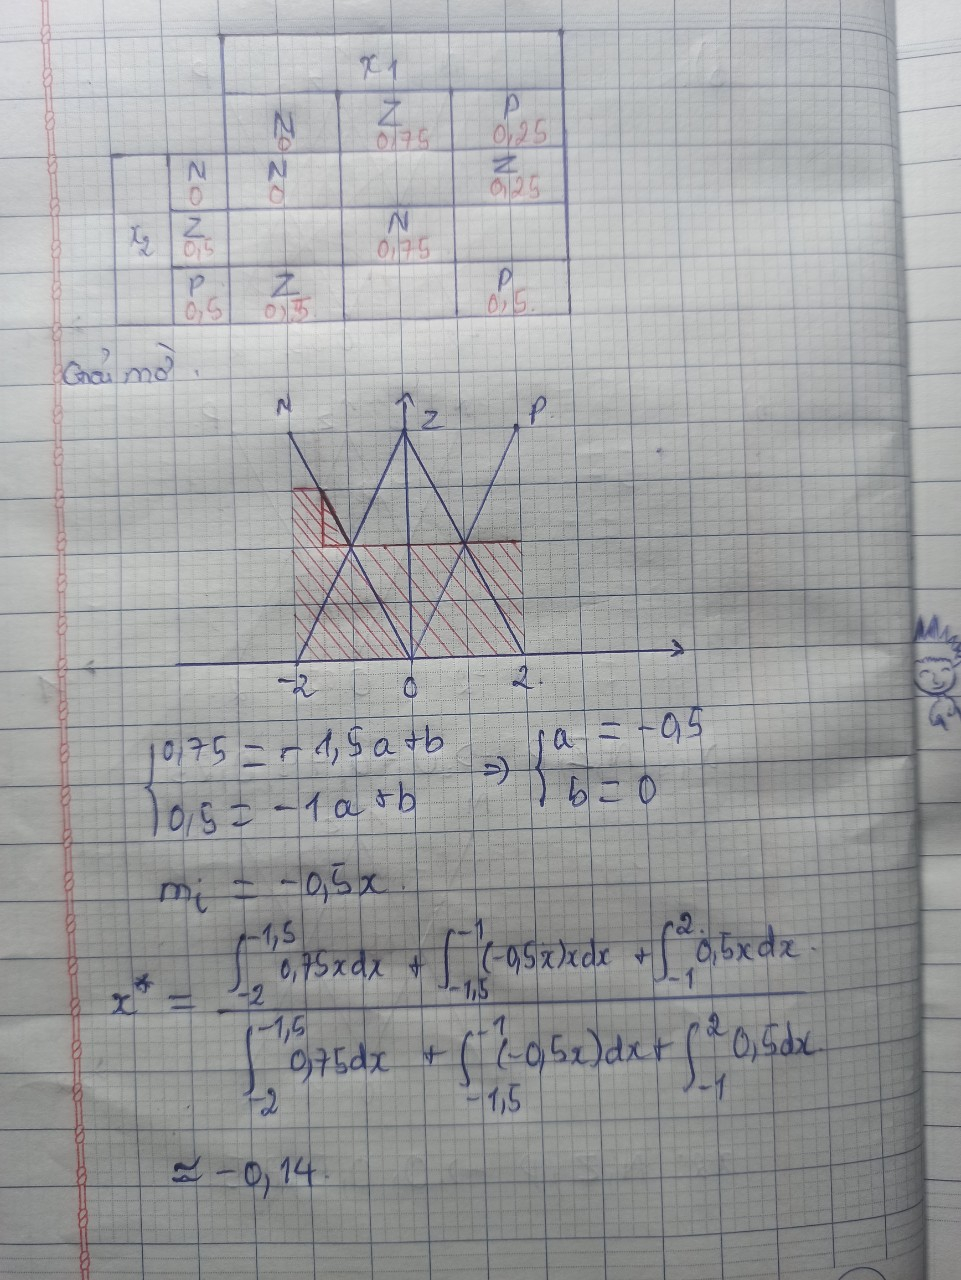 x1
N Z P
0 0,75 0,25
N N Z
0 0 0,25
x2 Z N
0,5 0,75
P Z P
0,5 0,5.
Giải mờ.
N Z P.
-2 0 2.
{0,75 = -1,5a+b => {a = -0,5
0,5 = -1a+b b = 0
mi = -0,5x.
x* = (∫_{-2}^{-1,5} 0,75xdx + ∫_{-1,5}^{-1} (-0,5x)xdx + ∫_{-1}^{2} 0,5xdx.) / (∫_{-2}^{-1,5} 0,75dx + ∫_{-1,5}^{-1} (-0,5x)dx + ∫_{-1}^{2} 0,5dx)
≈ -0,14.